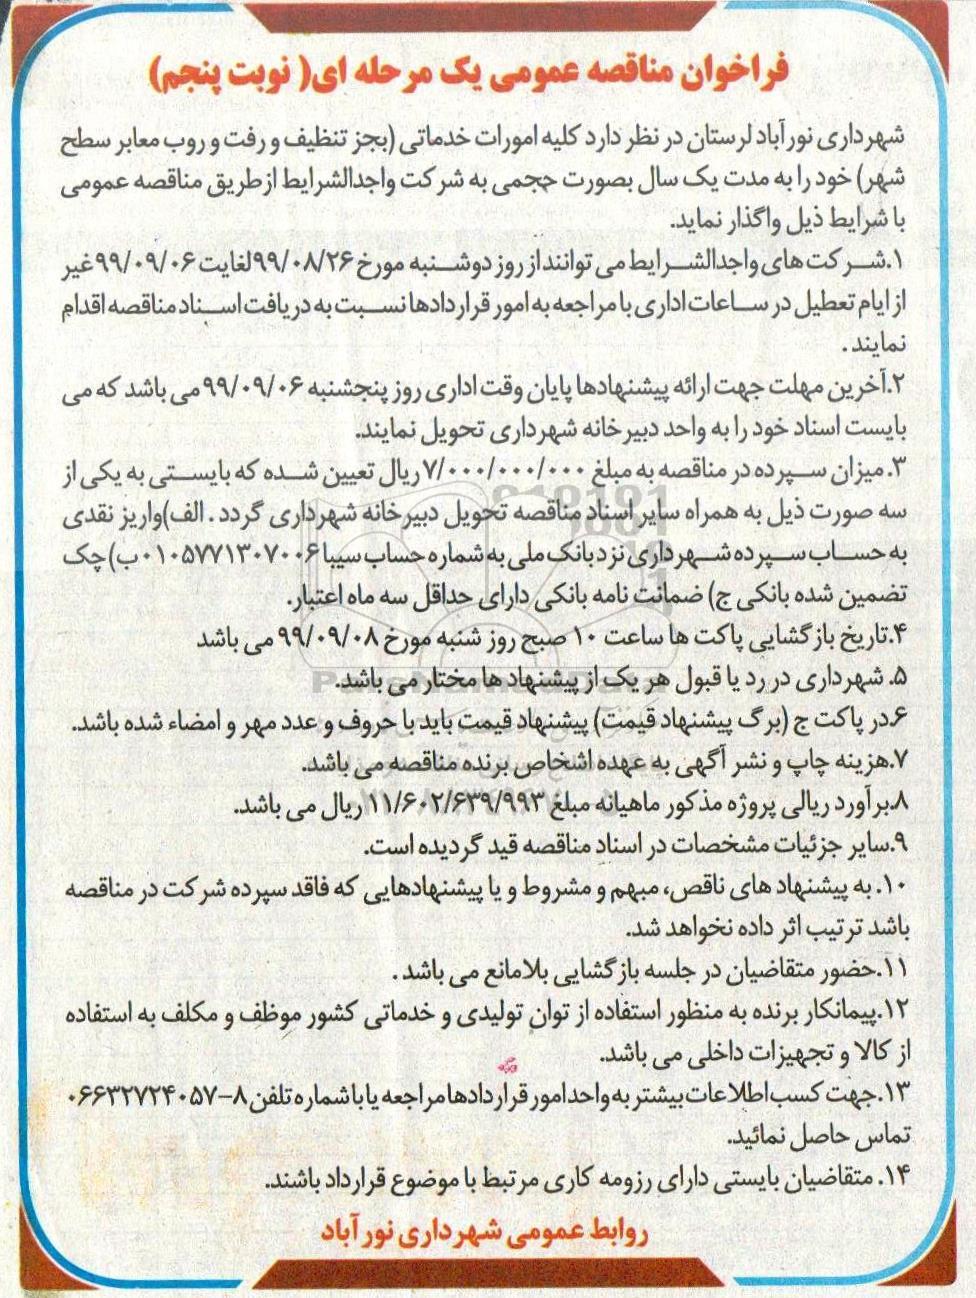 فراخوان مناقصه عمومی یک مرحله ای( نوبت پنجم)
شهرداری نورآباد لرستان در نظر دارد کلیه امورات خدماتی (بجز تنظیف و رفت و روب معابر سطح
شهر) خود را به مدت یک سال بصورت حجمی به شرکت واجدالشرایط از طریق مناقصه عمومی
با شرایط ذیل واگذار نماید.
۱.شرکت های واجدالشرایط می توانند از روز دوشنبه مورخ ۹۹/۰۸/۲۶ لغایت ۹۹/۰۹/۰۶ غیر
از ایام تعطیل در ساعات اداری با مراجعه به امور قراردادها نسبت به دریافت اسناد مناقصه اقدام
نمایند .
۲.آخرین مهلت جهت ارائه پیشنهادها پایان وقت اداری روز پنجشنبه ۹۹/۰۹/۰۶ می باشد که می
بایست اسناد خود را به واحد دبیرخانه شهرداری تحویل نمایند.
۳. میزان سپرده در مناقصه به مبلغ ۷/۰۰۰/۰۰۰/۰۰۰ ریال تعیین شده که بایستی به یکی از
سه صورت ذیل به همراه سایر اسناد مناقصه تحویل دبیرخانه شهرداری گردد . الف)واریز نقدی
به حساب سپرده شهرداری نزد بانک ملی به شماره حساب سیبا ۰۱۰۵۷۷۱۳۰۷۰۰۶ ب) چک
تضمین شده بانکی ج) ضمانت نامه بانکی دارای حداقل سه ماه اعتبار.
۴.تاریخ بازگشایی پاکت ها ساعت ۱۰ صبح روز شنبه مورخ ۹۹/۰۹/۰۸ می باشد
۵. شهرداری در رد یا قبول هر یک از پیشنهاد ها مختار می باشد.
۶.در پاکت ج (برگ پیشنهاد قیمت) پیشنهاد قیمت باید با حروف و عدد مهر و امضاء شده باشد.
۷.هزینه چاپ و نشر آگهی به عهده اشخاص برنده مناقصه می باشد.
۸.برآورد ریالی پروژه مذکور ماهیانه مبلغ ۱۱/۶۰۲/۶۳۹/۹۹۳ ریال می باشد.
۹.سایر جزئیات مشخصات در اسناد مناقصه قید گردیده است.
۱۰. به پیشنهاد های ناقص، مبهم و مشروط و یا پیشنهادهایی که فاقد سپرده شرکت در مناقصه
باشد ترتیب اثر داده نخواهد شد.
۱۱.حضور متقاضیان در جلسه بازگشایی بلامانع می باشد .
۱۲.پیمانکار برنده به منظور استفاده از توان تولیدی و خدماتی کشور موظف و مکلف به استفاده
از کالا و تجهیزات داخلی می باشد.
۱۳.جهت کسب اطلاعات بیشتر به واحد امور قراردادها مراجعه یا با شماره تلفن ۸-۰۶۶۳۲۷۲۴۰۵۷
تماس حاصل نمائید.
۱۴. متقاضیان بایستی دارای رزومه کاری مرتبط با موضوع قرارداد باشند.
روابط عمومی شهرداری نورآباد